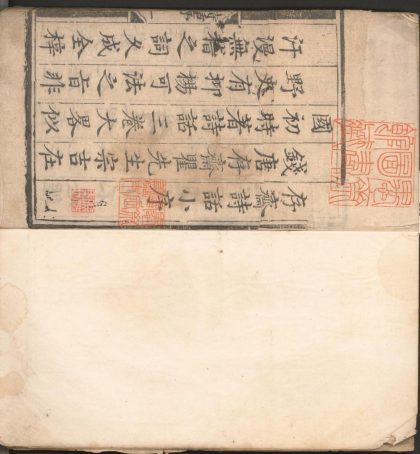 存齋詩話小序
錢唐存齋瞿先生宗吉在
國初時著詩話三卷大畧似
野史有抑揚可法之音非
汗漫無稽之詞久成全梓